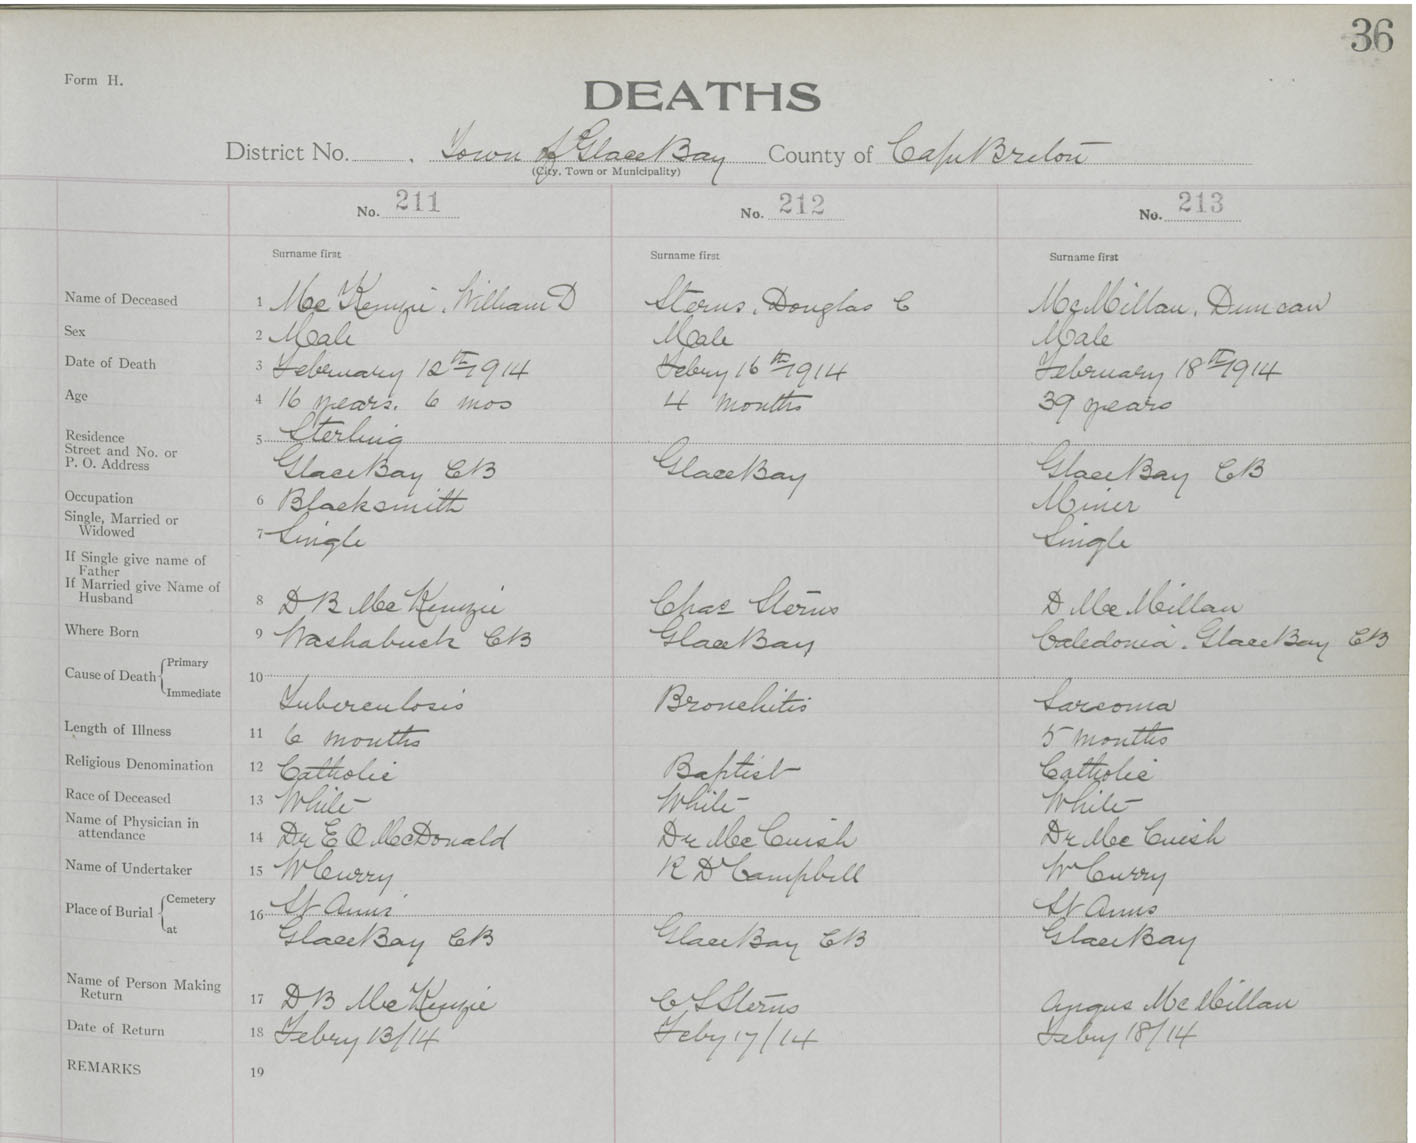 36
Form H.
DEATHS
District No. . Town of Glace Bay County of Cape Breton
(City, Town or Municipality)
No. 211 No. 212 No. 213
Surname first Surname first Surname first
Name of Deceased 1 McKenzie, William D Sterns, Douglas C McMillan, Duncan
Sex 2 Male Male Male
Date of Death 3 February 12th 1914 Febry 16th 1914 February 18th 1914
Age 4 16 years. 6 mos 4 months 39 years
Residence 5 Sterling
Street and No. or
P. O. Address Glace Bay CB Glace Bay Glace Bay CB
Occupation 6 Blacksmith Miner
Single, Married or
Widowed 7 Single Single
If Single give name of
Father
If Married give Name of
Husband 8 D B McKenzie Chas Sterns D McMillan
Where Born 9 Washabuck CB Glace Bay Caledonia. Glace Bay CB
Cause of Death Primary 10
Immediate Tuberculosis Bronchitis Sarcoma
Length of Illness 11 6 months 5 months
Religious Denomination 12 Catholic Baptist Catholic
Race of Deceased 13 White White White
Name of Physician in
attendance 14 Dr E O McDonald Dr McCuish Dr McCuish
Name of Undertaker 15 W Curry R D Campbell W Curry
Place of Burial Cemetery 16 St Anns St Anns
at Glace Bay CB Glace Bay CB Glace Bay
Name of Person Making
Return 17 D B McKenzie C S Sterns Angus McMillan
Date of Return 18 Febry 13/14 Feby 17/14 Febry 18/14
REMARKS 19